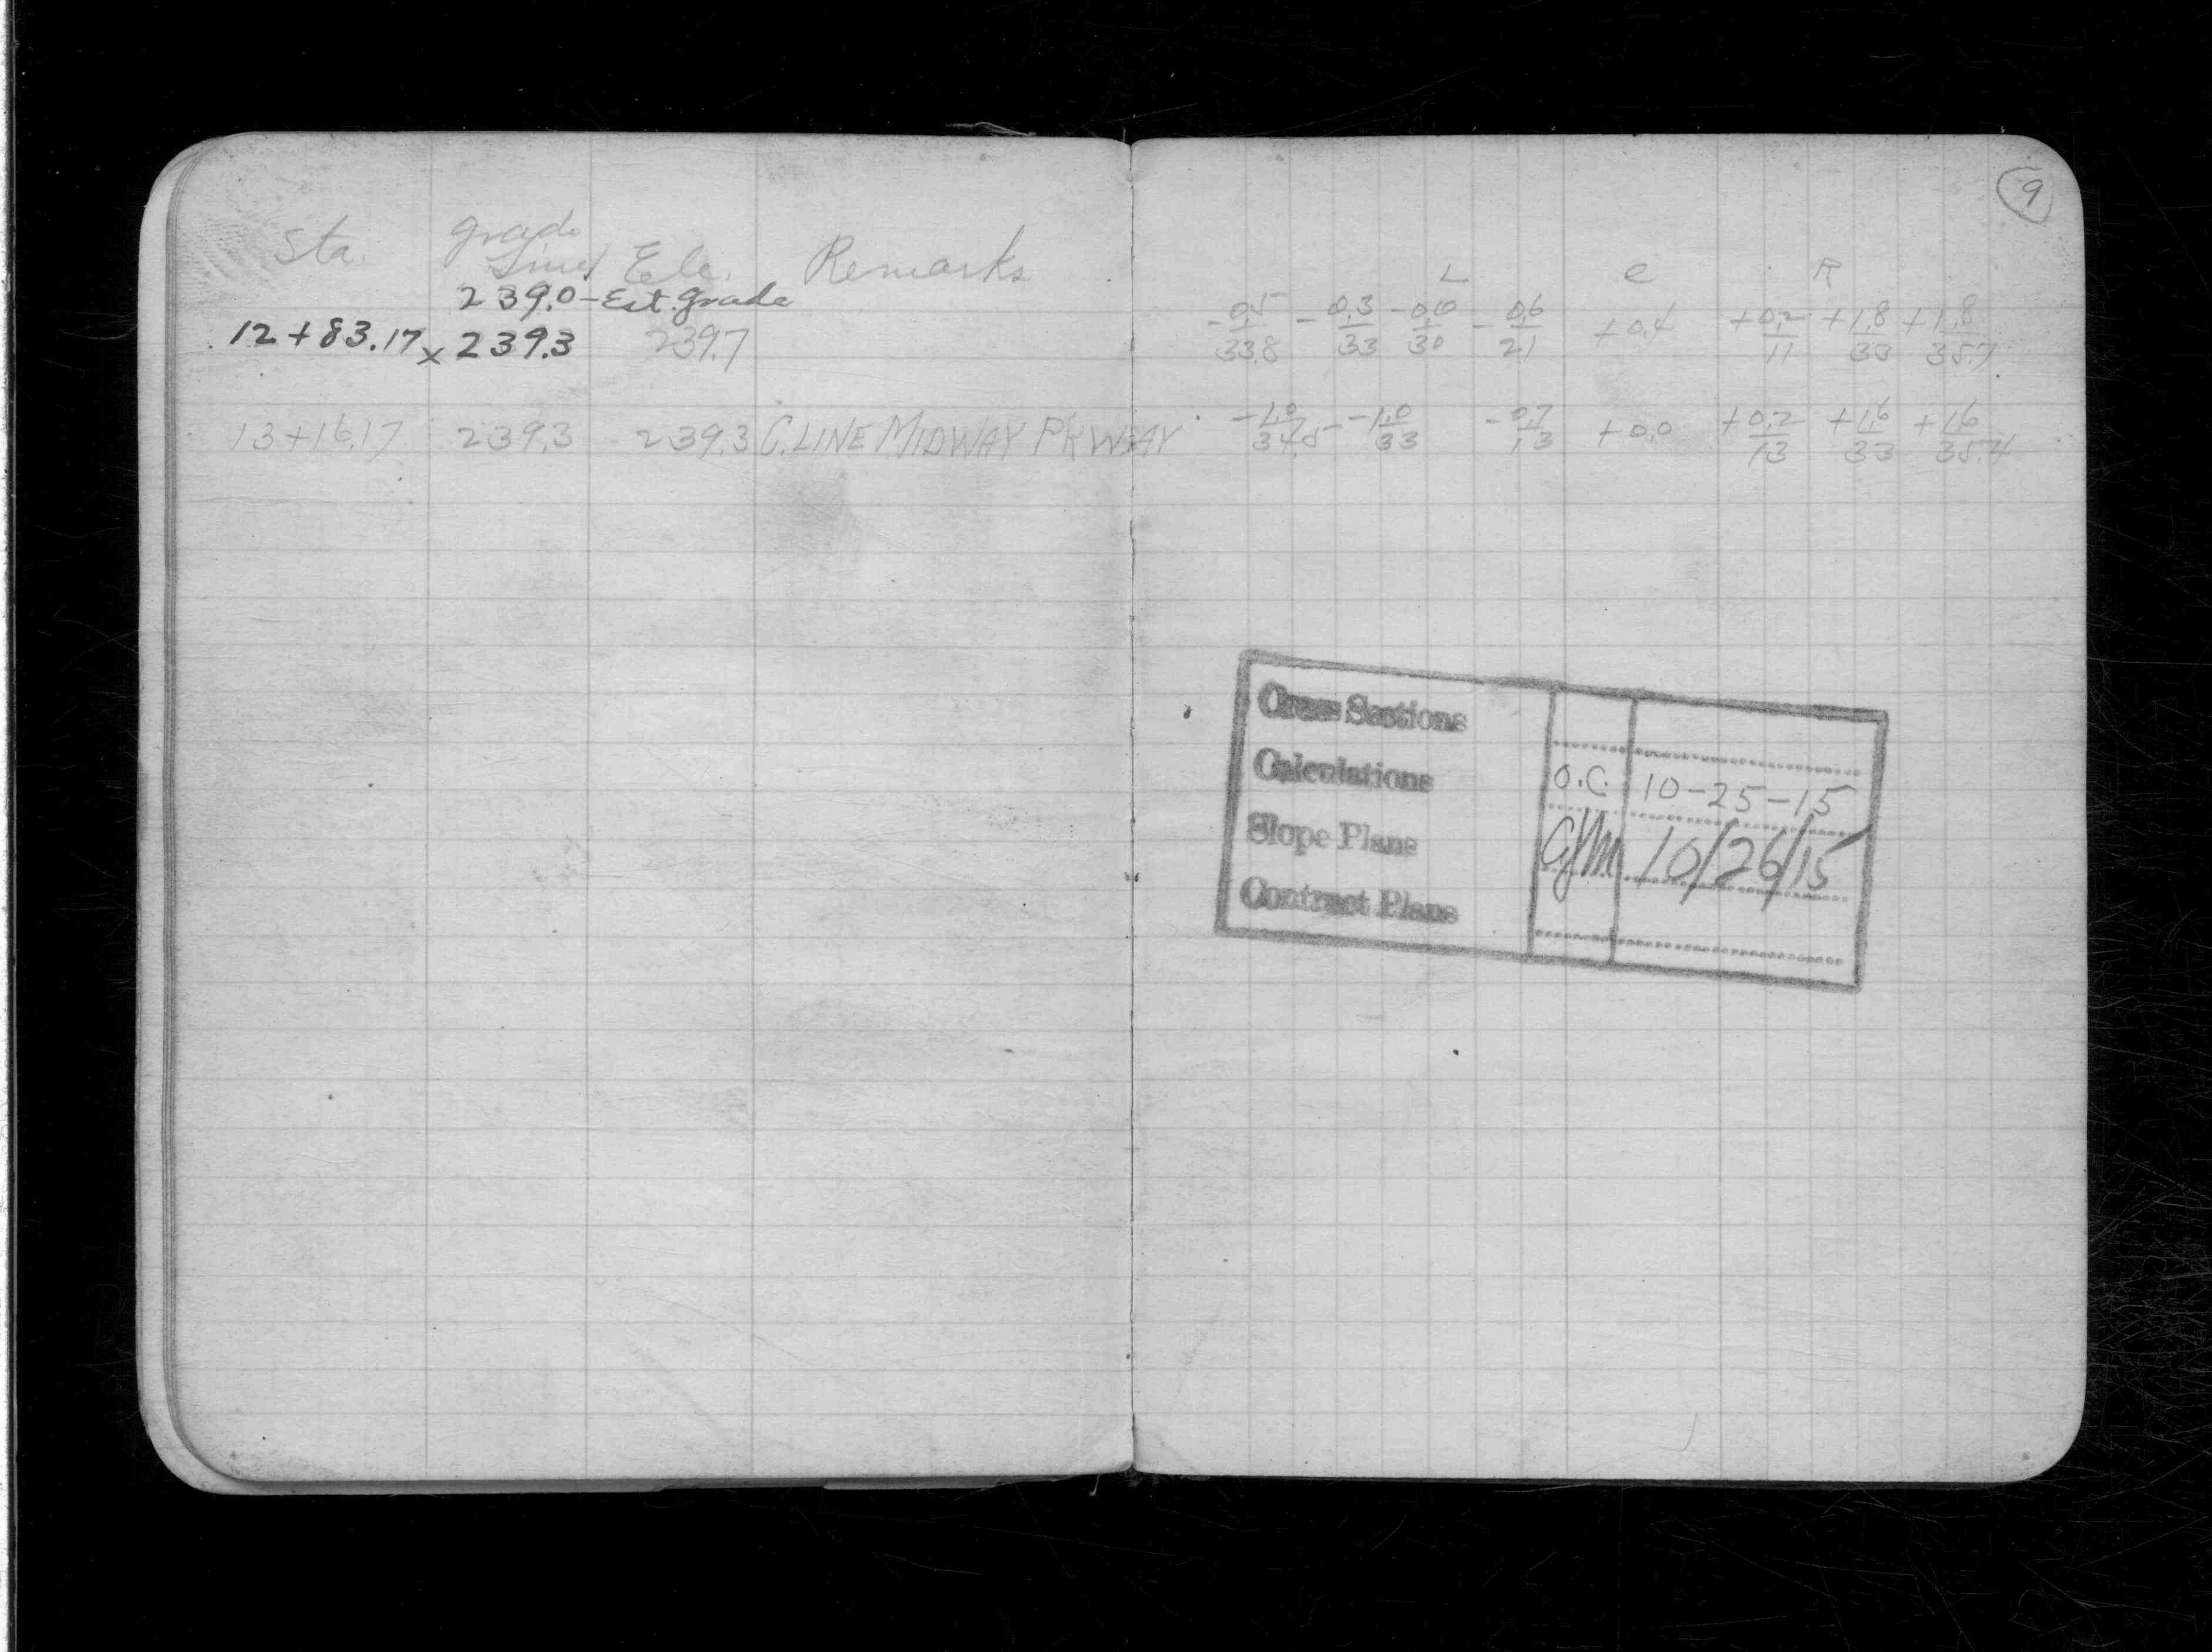 Sta. grade Line Ele. Remarks
239.0 - Est. grade
12+83.17 x 239.3 239.7
13+16.17 239.3 239.3 C. LINE MIDWAY PKWAY
9
L C R
-0.5/33.8 -0.3/33 -0.0/30 -0.6/21 +0.4 +0.2/11 +1.8/33 +1.8/35.7
-1.0/34.5 -1.0/33 -0.7/13 +0.0 +0.2/13 +1.6/33 +1.6/35.4
Cross Sections
Calculations O.C. 10-25-15
Slope Plans 10/26/15
Contract Plans